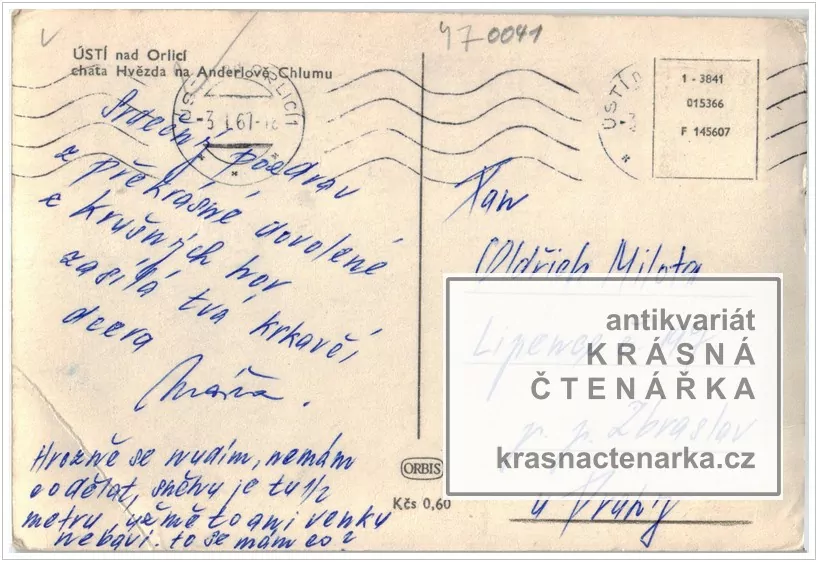 470041
ÚSTÍ nad Orlicí
chata Hvězda na Anderlově Chlumu
ORLICÍ 1
ÚSTÍ
1 - 3841
015366
F 145607
Srdečný pozdrav
z překrásné dovolené
z Krušných hor
zasílá tvá krkavčí
dcera
Máňa.
Hrozně se nudím, nemám
co dělat, sněhu je tu 1/2
metru, už mě to ani venku
nebaví. to se mám co?
Pan
Oldřich Milota
Lipence
p. p. Zbraslav
u Prahy
ORBIS
Kčs 0,60
antikvariát
KRÁSNÁ
ČTENÁŘKA
krasnactenarka.cz